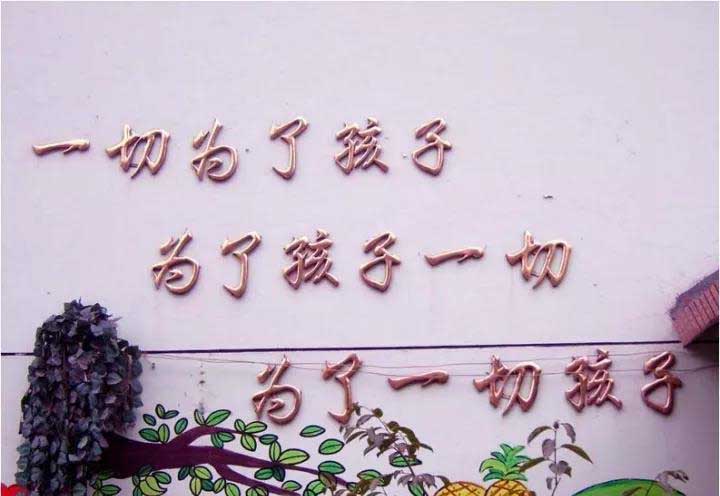 一切为了孩子
为了孩子一切
为了一切孩子